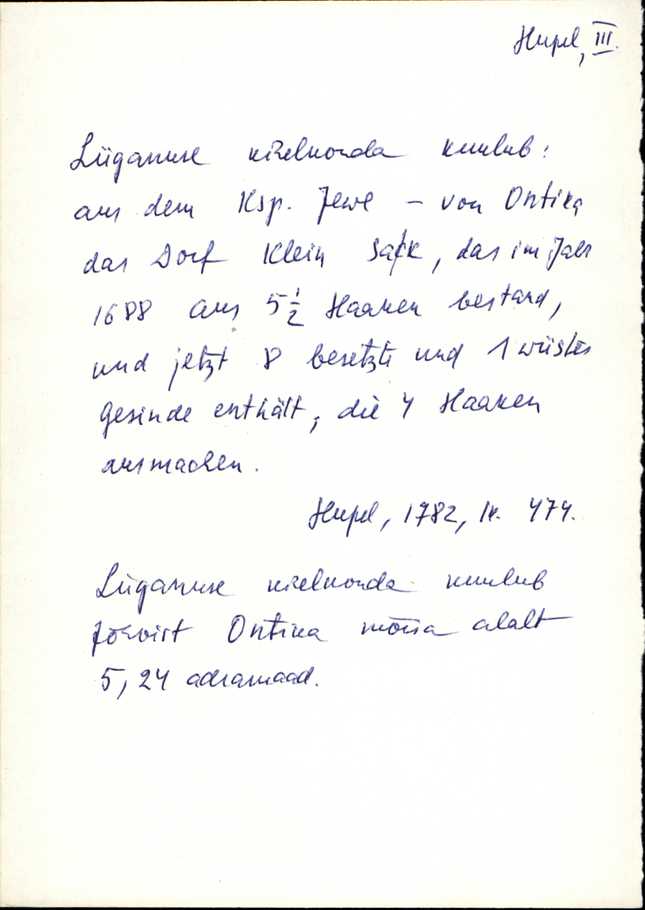 Hupel, III.
Lüganuse kihelkonda kuulub:
aus dem Ksp. Jewe – von Ontika
das Dorf Klein Sack, das im Jahr
1688 aus 5 1/2 Haaken bestand,
und jetzt 8 besetzte und 1 wüstes
Gesinde enthält, die 4 Haaken
ausmachen.
Hupel, 1782, lk. 474.
Lüganuse kihelkonda kuulub
Jõhvist Ontika mõisa alalt
5,24 adramaad.